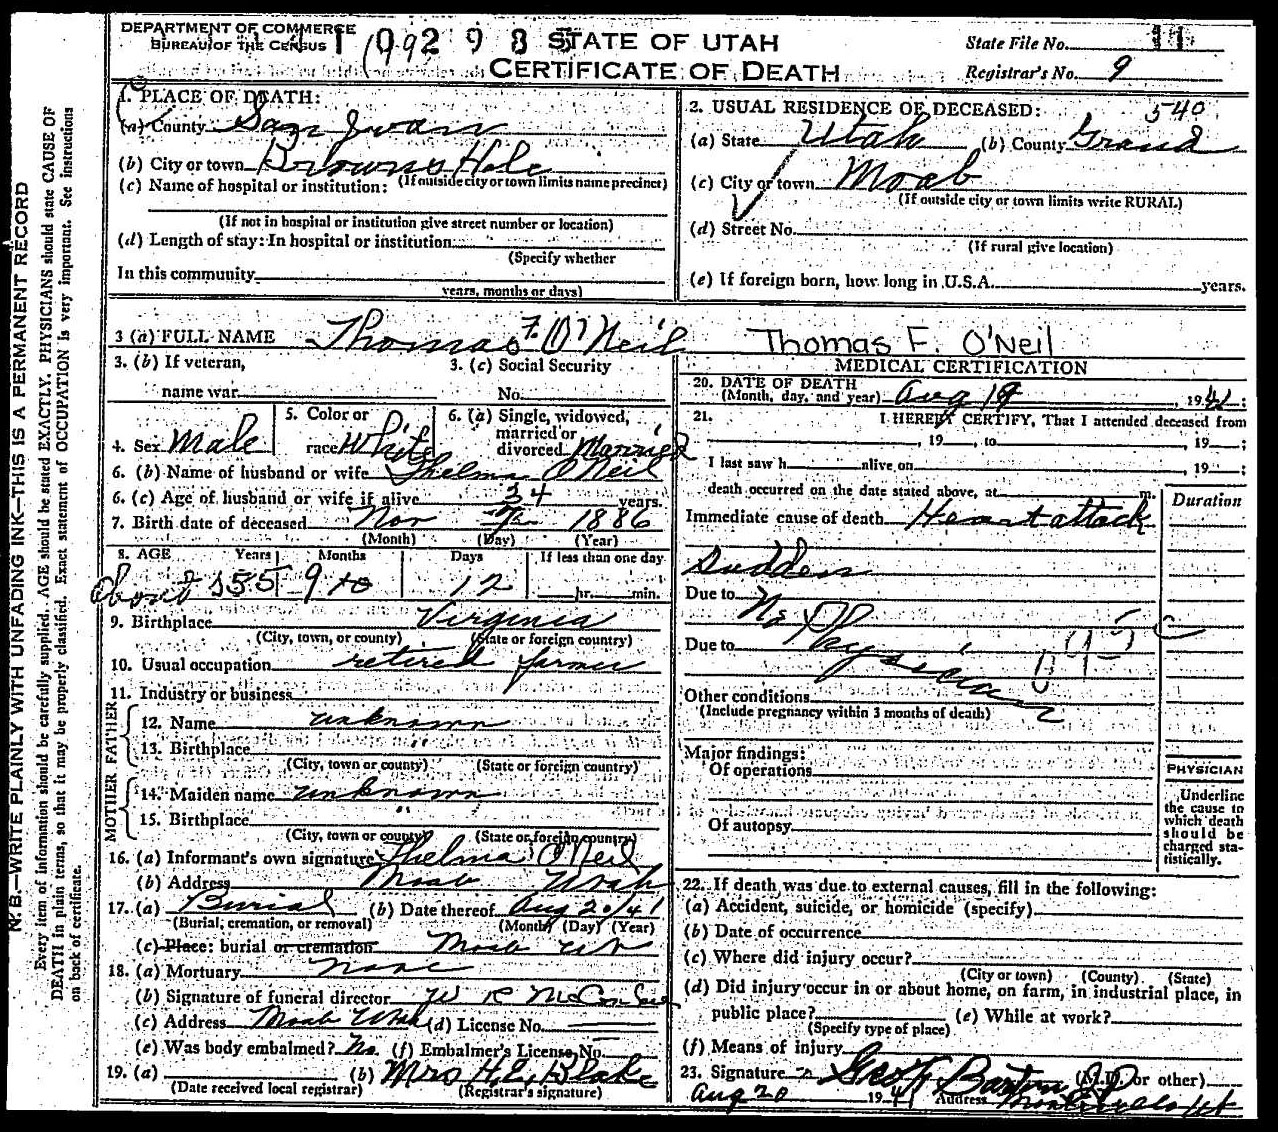 DEPARTMENT OF COMMERCE
BUREAU OF THE CENSUS
STATE OF UTAH
CERTIFICATE OF DEATH
State File No. 11
Registrar's No. 9
N. B.—WRITE PLAINLY WITH UNFADING INK—THIS IS A PERMANENT RECORD
Every item of information should be carefully supplied. AGE should be stated EXACTLY. PHYSICIANS should state CAUSE OF
DEATH in plain terms, so that it may be properly classified. Exact statement of OCCUPATION is very important. See instructions
on back of certificate.
1. PLACE OF DEATH:
(a) County San Juan
(b) City or town Browns Hole
(If outside city or town limits name precinct)
(c) Name of hospital or institution:
(If not in hospital or institution give street number or location)
(d) Length of stay: In hospital or institution
(Specify whether
In this community
years, months or days)
2. USUAL RESIDENCE OF DECEASED: 540
(a) State Utah (b) County Grand
(c) City or town Moab
(If outside city or town limits write RURAL)
(d) Street No.
(If rural give location)
(e) If foreign born, how long in U.S.A. years.
3 (a) FULL NAME Thomas F. O'Neil Thomas F. O'Neil
3. (b) If veteran,
name war
3. (c) Social Security
No.
4. Sex Male
5. Color or
race White
6. (a) Single, widowed,
married or
divorced Married
6. (b) Name of husband or wife Thelma O'Neil
6. (c) Age of husband or wife if alive 34 years.
7. Birth date of deceased Nov 1886
(Month) (Day) (Year)
8. AGE Years Months Days If less than one day
about 55 9 12 hr. min.
9. Birthplace Virginia
(City, town, or county) (State or foreign country)
10. Usual occupation retired farmer
11. Industry or business
FATHER
12. Name unknown
13. Birthplace "
(City, town or county) (State or foreign country)
MOTHER
14. Maiden name unknown
15. Birthplace "
(City, town or county) (State or foreign country)
16. (a) Informant's own signature Thelma O'Neil
(b) Address Moab Utah
17. (a) Burial (b) Date thereof Aug 20/41
(Burial, cremation, or removal) (Month) (Day) (Year)
(c) Place: burial or cremation Moab Ut
18. (a) Mortuary none
(b) Signature of funeral director W R McConkie
(c) Address Moab Utah (d) License No.
(e) Was body embalmed? No. (f) Embalmer's License No.
19. (a) (b) Mrs H. E. Blake
(Date received local registrar) (Registrar's signature)
MEDICAL CERTIFICATION
20. DATE OF DEATH
(Month, day, and year) Aug 19, 1941:
21. I HEREBY CERTIFY, That I attended deceased from
, 19 , to , 19 ;
I last saw h alive on , 19 ;
death occurred on the date stated above, at m.
Duration
Immediate cause of death Heart attack
Sudden
Due to No Physician
Due to
Other conditions
(Include pregnancy within 3 months of death)
Major findings:
Of operations
Of autopsy
PHYSICIAN
Underline
the cause to
which death
should be
charged sta-
tistically.
22. If death was due to external causes, fill in the following:
(a) Accident, suicide, or homicide (specify)
(b) Date of occurrence
(c) Where did injury occur?
(City or town) (County) (State)
(d) Did injury occur in or about home, on farm, in industrial place, in
public place? (e) While at work?
(Specify type of place)
(f) Means of injury
23. Signature Geo F Barton J.P. (M.D. or other)
Aug 20 1941 Address Monticello Ut